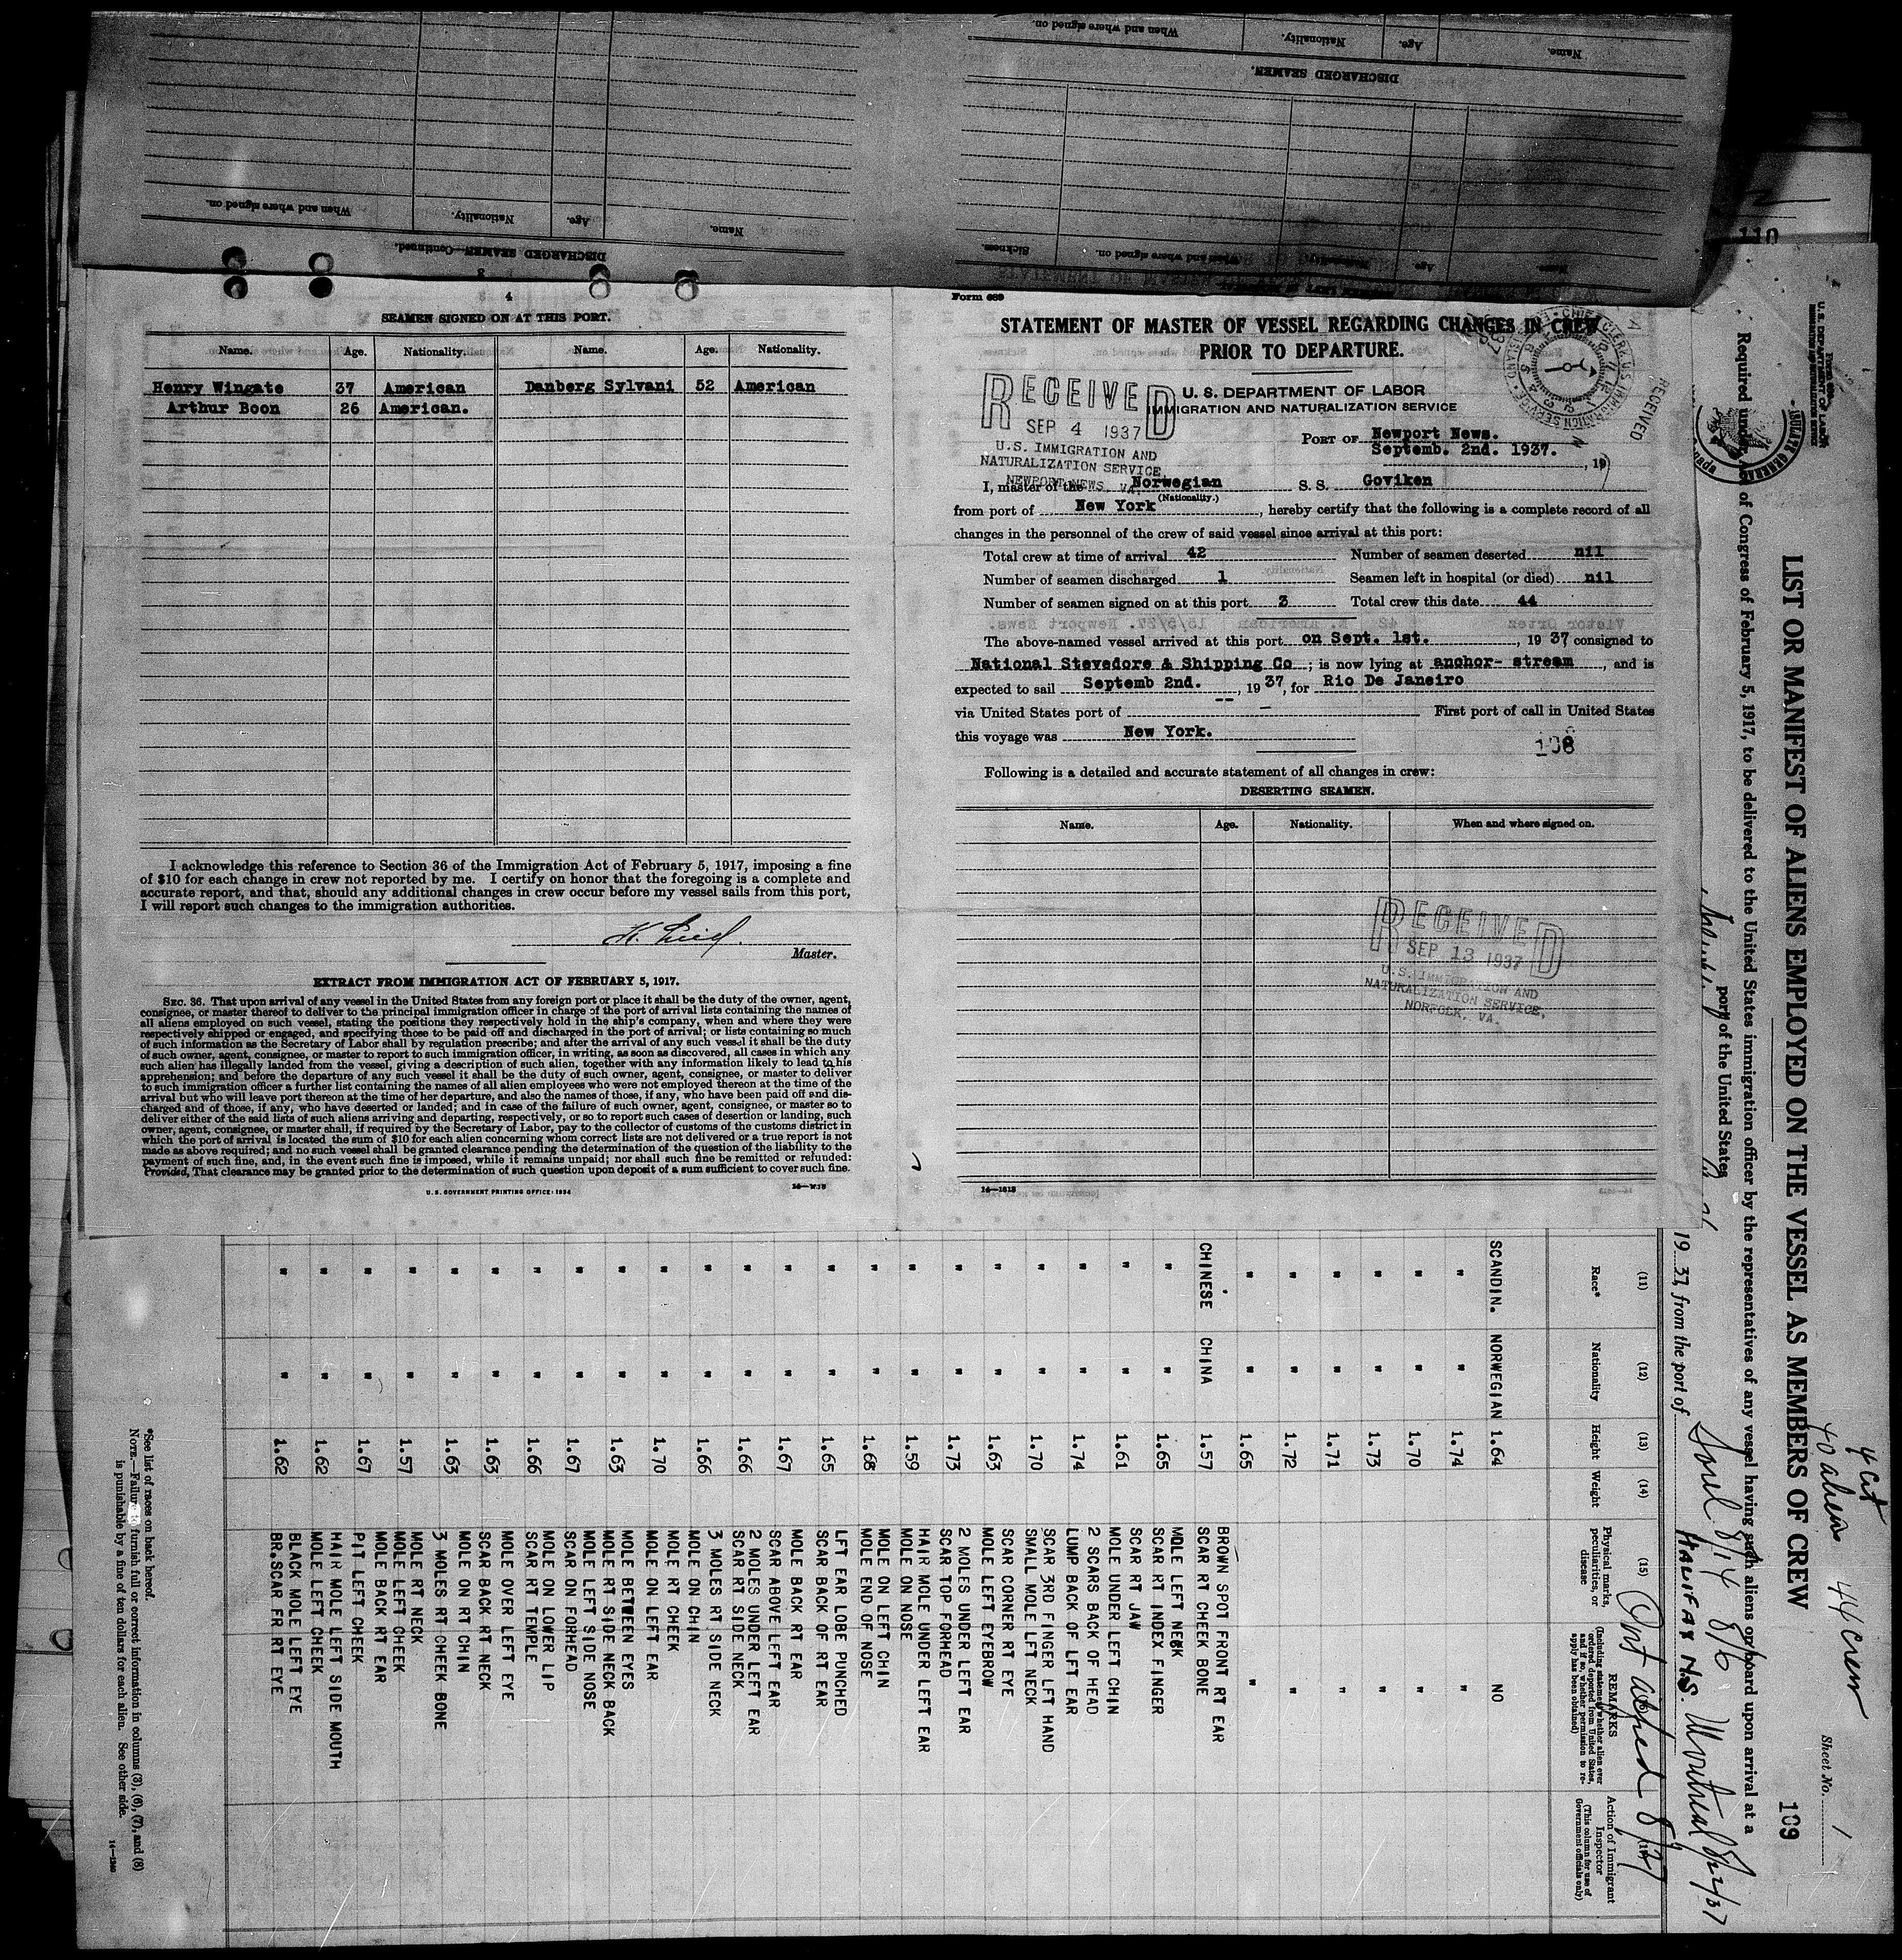 DISCHARGED SEAMEN.
Name.
Age.
Nationality.
When and where signed on.
Sickness.
DISCHARGED SEAMEN—Continued.
Name.
Age.
Nationality.
When and where signed on.
3
4
SEAMEN SIGNED ON AT THIS PORT.
Name. Age. Nationality. Name. Age. Nationality.
Henry Wingate 37 American Danberg Sylvani 52 American
Arthur Boon 26 American.
I acknowledge this reference to Section 36 of the Immigration Act of February 5, 1917, imposing a fine
of $10 for each change in crew not reported by me. I certify on honor that the foregoing is a complete and
accurate report, and that, should any additional changes in crew occur before my vessel sails from this port,
I will report such changes to the immigration authorities.
Master.
EXTRACT FROM IMMIGRATION ACT OF FEBRUARY 5, 1917.
SEC. 36. That upon arrival of any vessel in the United States from any foreign port or place it shall be the duty of the owner, agent,
consignee, or master thereof to deliver to the principal immigration officer in charge of the port of arrival lists containing the names of
all aliens employed on such vessel, stating the positions they respectively hold in the ship's company, when and where they were
respectively shipped or engaged, and specifying those to be paid off and discharged in the port of arrival; or lists containing so much
of such information as the Secretary of Labor shall by regulation prescribe; and after the arrival of any such vessel it shall be the duty
of such owner, agent, consignee, or master to report to such immigration officer, in writing, as soon as discovered, all cases in which any
such alien has illegally landed from the vessel, giving a description of such alien, together with any information likely to lead to his
apprehension; and before the departure of any such vessel it shall be the duty of such owner, agent, consignee, or master to deliver
to such immigration officer a further list containing the names of all alien employees who were not employed thereon at the time of the
arrival but who will leave port thereon at the time of her departure, and also the names of those, if any, who have been paid off and dis-
charged and of those, if any, who have deserted or landed; and in case of the failure of such owner, agent, consignee, or master so to
deliver either of the said lists of such aliens arriving and departing, respectively, or so to report such cases of desertion or landing, such
owner, agent, consignee, or master shall, if required by the Secretary of Labor, pay to the collector of customs of the customs district in
which the port of arrival is located the sum of $10 for each alien concerning whom correct lists are not delivered or a true report is not
made as above required; and no such vessel shall be granted clearance pending the determination of the question of the liability to the
payment of such fine, and, in the event such fine is imposed, while it remains unpaid; nor shall such fine be remitted or refunded:
Provided, That clearance may be granted prior to the determination of such question upon deposit of a sum sufficient to cover such fine.
U. S. GOVERNMENT PRINTING OFFICE: 1934
Form 689
STATEMENT OF MASTER OF VESSEL REGARDING CHANGES IN CREW
PRIOR TO DEPARTURE.
U. S. DEPARTMENT OF LABOR
IMMIGRATION AND NATURALIZATION SERVICE
RECEIVED
SEP 4 1937
U.S. IMMIGRATION AND
NATURALIZATION SERVICE,
NEWPORT NEWS, VA.
RECEIVED
PORT OF Newport News.
Septemb. 2nd. 1937. , 19
I, master of the Norwegian S. S. Goviken
(Nationality.)
from port of New York , hereby certify that the following is a complete record of all
changes in the personnel of the crew of said vessel since arrival at this port:
Total crew at time of arrival 42 Number of seamen deserted nil
Number of seamen discharged 1 Seamen left in hospital (or died) nil
Number of seamen signed on at this port 3 Total crew this date 44
The above-named vessel arrived at this port on Sept. 1st. , 19 37 consigned to
National Stevedore & Shipping Co ; is now lying at anchor- stream , and is
expected to sail Septemb 2nd. , 19 37, for Rio De Janeiro
via United States port of -- – First port of call in United States
this voyage was New York.
108
Following is a detailed and accurate statement of all changes in crew:
DESERTING SEAMEN.
Name. Age. Nationality. When and where signed on.
RECEIVED
SEP 13 1937
U.S. IMMIGRATION AND
NATURALIZATION SERVICE,
NORFOLK, VA.
14—1813
110
U.S. DEPARTMENT OF LABOR
Sheet No. 1
109
4 cit
40 alien 44 crew
LIST OR MANIFEST OF ALIENS EMPLOYED ON THE VESSEL AS MEMBERS OF CREW
Required under Act of Congress of February 5, 1917, to be delivered to the United States immigration officer by the representatives of any vessel having such aliens on board upon arrival at a
port of the United States
19 37, from the port of Sorel 8/14 8/6 HALIFAX N.S. Montreal
(11) (12) (13) (14) (15)
Race* Nationality Height Weight Physical marks, peculiarities, or disease
REMARKS
(Including statement whether alien ever ordered deported from United States, and if so, whether permission to reapply has been obtained)
Action of Immigrant Inspector
(This column for use of Government officials only)
SCANDIN. NORWEGIAN 1.64 NO
" " 1.74 "
" " 1.70 "
" " 1.73 "
" " 1.71 "
" " 1.72 "
" " 1.65 "
BROWN SPOT FRONT RT EAR
CHINESE CHINA 1.57 SCAR RT CHEEK BONE
MOLE LEFT NECK
" " 1.65 SCAR RT INDEX FINGER
SCAR RT JAW
" " 1.61 MOLE UNDER LEFT CHIN
2 SCARS BACK OF HEAD
" " 1.74 LUMP BACK OF LFT EAR
SCAR 3RD FINGER LFT HAND
" " 1.70 SMALL MOLE LFT NECK
SCAR CORNER RT EYE
" " 1.63 MOLE LEFT EYEBROW
2 MOLES UNDER LEFT EAR
" " 1.73 SCAR TOP FORHEAD
HAIR MOLE UNDER LEFT EAR
" " 1.59 MOLE ON NOSE
MOLE ON LEFT CHIN
" " 1.68 MOLE END OF NOSE
LFT EAR LOBE PUNCHED
" " 1.65 SCAR BACK OF RT EAR
MOLE BACK RT EAR
" " 1.67 SCAR ABOVE LEFT EAR
2 MOLES UNDER LEFT EAR
" " 1.66 SCAR RT SIDE NECK
3 MOLES RT SIDE NECK
" " 1.66 MOLE ON CHIN
MOLE RT CHEEK
" " 1.70 MOLE ON LEFT EAR
MOLE BETWEEN EYES
" " 1.63 MOLE RT SIDE NECK BACK
MOLE LEFT SIDE NOSE
" " 1.67 SCAR ON FORHEAD
MOLE ON LOWER LIP
" " 1.66 SCAR RT TEMPLE
MOLE OVER LEFT EYE
" " 1.63 SCAR BACK RT NECK
MOLE ON RT CHIN
" " 1.63 3 MOLES RT CHEEK BONE
MOLE RT NECK
" " 1.57 MOLE LEFT CHEEK
MOLE BACK RT EAR
" " 1.67 PIT LEFT CHEEK
HAIR MOLE LEFT SIDE MOUTH
" " 1.62 MOLE LEFT CHEEK
BLACK MOLE LEFT EYE
" " 1.62 BR.SCAR FR RT EYE
*See list of races on back hereof.
NOTE.—Failure to furnish full or correct information in columns (3), (6), (7), and (8)
is punishable by a fine of ten dollars for each alien. See other side.
14—1240